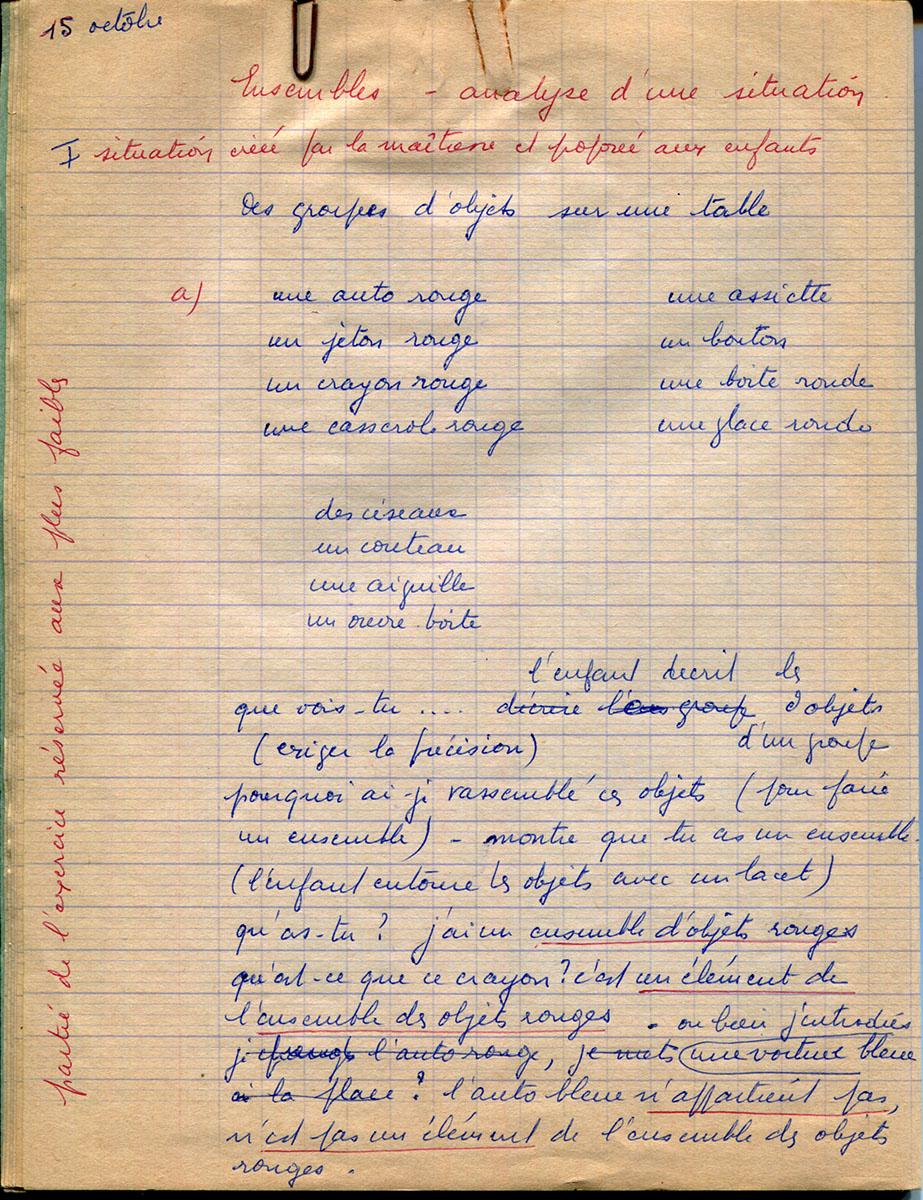 15 octobre
Ensembles - analyse d'une situation
I situation créé par la maîtresse et poposée aux enfants
Des groupes d'objets sur une table
a) une auto rouge une assiette
un jeton rouge un bouton
un crayon rouge une boite ronde
une casserole rouge une glace ronde
des ciseaux
un couteau
une aiguille
un ouvre-boite
l'enfant decrit les
que vois-tu .... décrire groupe d'objets
(exiger la précision) d'un groupe
pourquoi ai-je rassemblé ces objets (pour faire
un ensemble) - montre que tu as un ensemble.
(l'enfant entoure les objets avec un lacet)
qu'as-tu ? j'ai un ensemble d'objets rouges
qu'est-ce que ce crayon ? c'est un élément de
l'ensemble des objets rouges . ou bien j'introduis
je prends l'auto rouge, je mets une voiture bleue
à la place ? l'auto bleue n'appartient pas,
n'est pas un élément de l'ensemble des objets
rouges .
partie de l'exercice réservée aux plus faibles